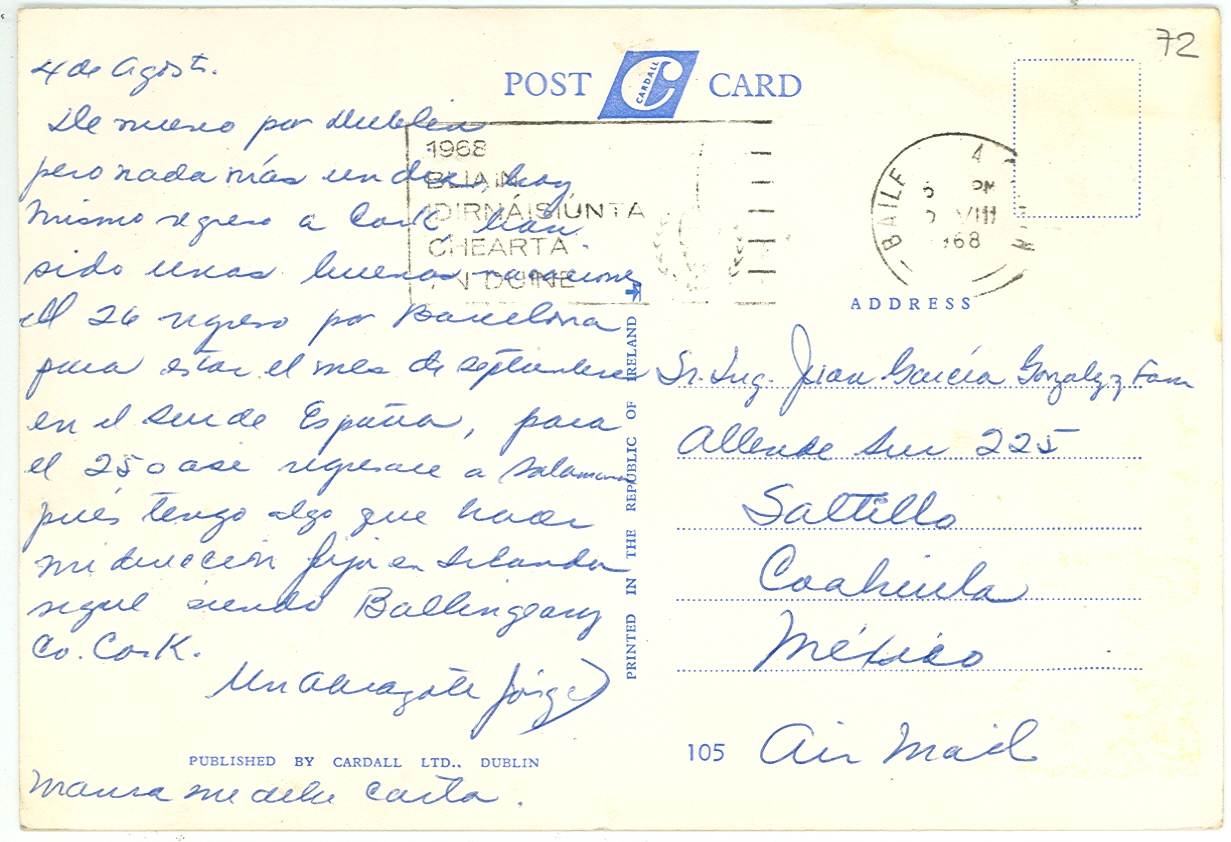 72
POST CARDALL CARD
4 de Agosto.
De nuevo por Dublin
pero nada más un dia, hoy
mismo regreso a Cork. han
sido unas buenas vacaciones
El 26 regreso por Barcelona
para estar el mes de septiembre
en el sur de España, para
el 25 o asi regresare a Salamanca
pués tengo algo que hacer
mi dirección fija en Irlanda
sigue siendo Ballingeary
Co. Cork.
Un abrazote Jorge
PUBLISHED BY CARDALL LTD., DUBLIN
Maura me debe carta.
1968
BLIAIN
IDIRNÁISIÚNTA
CHEARTA
AN DUINE
BAILE
PM
VIII
968
PRINTED IN THE REPUBLIC OF IRELAND
ADDRESS
Sr. Ing. Juan García Gonzalez y Fam
Allende Sur 225
Saltillo
Coahuila
México
105 Air Mail